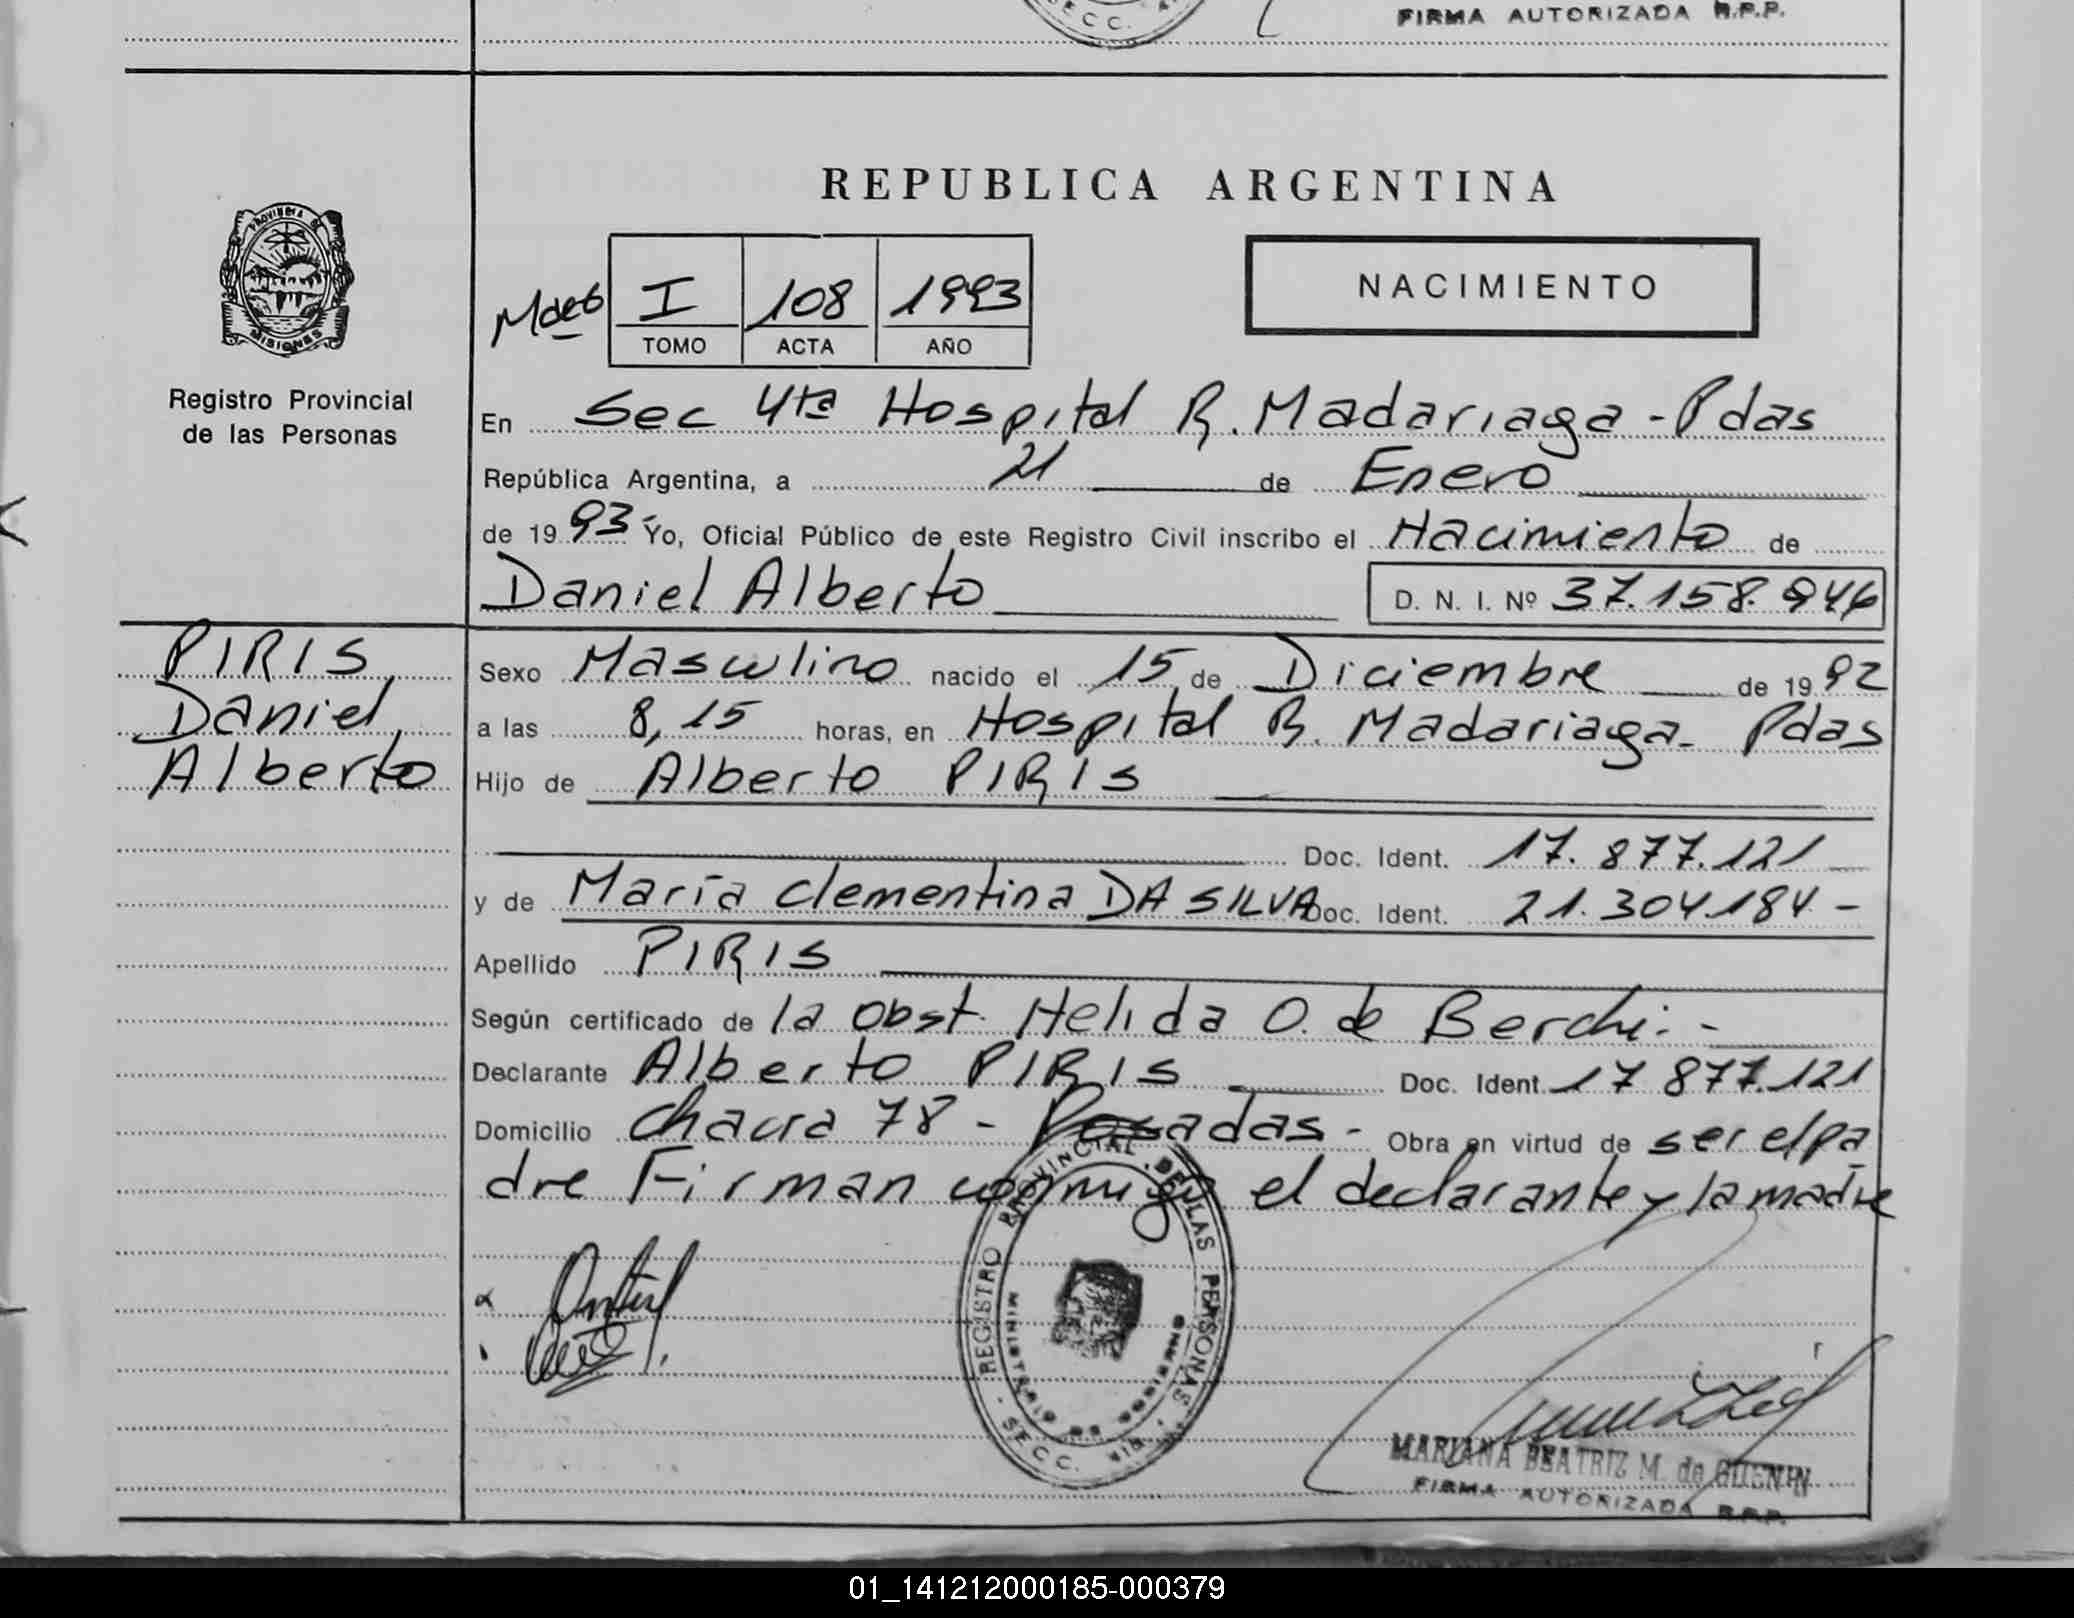 SECC.
FIRMA AUTORIZADA R.P.P.
REPUBLICA ARGENTINA
PROVINCIA DE
MISIONES
I 108 1993
TOMO ACTA AÑO
NACIMIENTO
Registro Provincial
de las Personas
En Sec 4ta Hospital R. Madariaga - Pdas
República Argentina, a 21 de Enero
de 1993 Yo, Oficial Público de este Registro Civil inscribo el Nacimiento de
Daniel Alberto D. N. I. Nº 37.158.946
PIRIS
Daniel
Alberto
Sexo Masculino nacido el 15 de Diciembre de 1992
a las 8,15 horas, en Hospital R. Madariaga - Pdas
Hijo de Alberto PIRIS
Doc. Ident. 17.877.121
y de María Clementina DA SILVA Doc. Ident. 21.304.184 -
Apellido PIRIS
Según certificado de la Obst. Helida O. de Berchi. -
Declarante Alberto PIRIS Doc. Ident 17 877.121
Domicilio Chacra 78 - Posadas - Obra en virtud de ser el pa
dre Firman conmigo el declarante y la madre
REGISTRO PROVINCIAL DE LAS PERSONAS
MINISTERIO DE GOBIERNO
SECC.
MARIANA BEATRIZ M. de GUENIN
FIRMA AUTORIZADA R.P.P.
01_141212000185-000379